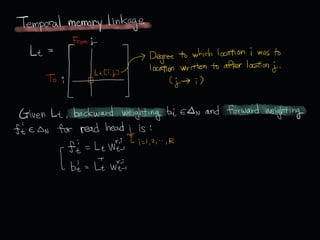 Temporal memory linkage
From j
L_t =
To i
L_t[i,j]
Degree to which location i was to
location written to after location j.
(j → i)
Given L_t, backward weighting b_t^i ∈ Δ_N and forward weighting
f_t^i ∈ Δ_N for read head i is :
i=1,2,⋯,R
f_t^i = L_t w_{t-1}^{r,i}
b_t^i = L_t^T w_{t-1}^{r,i}